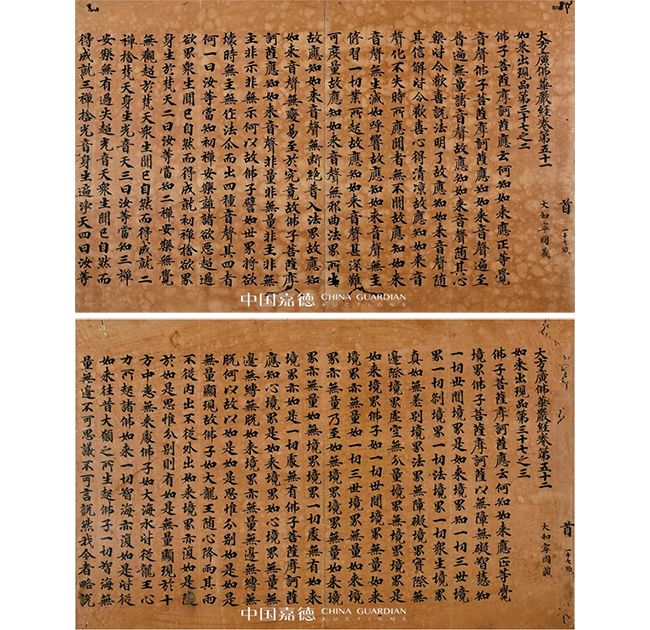 大方廣佛華嚴經卷第五十一
首 一十七紙
大和寧國藏
如来出現品第三十七之二
佛子菩薩摩訶薩應云何知如来應正等覺
音聲佛子菩薩摩訶薩應知如来音聲遍至
普遍無量諸音聲故應知如来音聲隨其心
樂皆令歡喜說法明了故應知如来音聲隨
其信解皆令歡喜心得清涼故應知如来音
聲化不失時所應聞者無不聞故應知如来
音聲無生滅如呼響故應知如来音聲無主
修習一切業所起故應知如来音聲甚深難
可度量故應知如来音聲無邪曲法界所生
故應知如来音聲無斷絕普入法界故應知
如来音聲無變易至於究竟故佛子菩薩摩
訶薩應知如来音聲非量非無量非主非無
主非示非無示何以故佛子譬如世界將欲
壞時無主無作法尒而出四種音聲其四者
何一曰汝等當知初禪安樂離諸欲惡超過
欲界衆生聞已自然而得成就初禪捨欲界
身生於梵天二曰汝等當知二禪安樂無覺
無觀超於梵天衆生聞已自然而得成就二
禪捨梵天身生光音天三曰汝等當知三禪
安樂無有過失超光音天衆生聞已自然而
得成就三禪捨光音身生遍淨天四曰汝等
中国嘉德 CHINA GUARDIAN
AUCTIONS
大方廣佛華嚴經卷第五十二
首 一十七紙
大和寧國藏
如来出現品第三十七之三
佛子菩薩摩訶薩應云何知如来應正等覺
境界佛子菩薩摩訶薩以無障無礙智慧知
一切世間境界是如来境界知一切三世境
界一切剎境界一切法境界一切衆生境界
真如無差別境界法界無障礙境界實際無
邊際境界虛空無分量境界無境界境界是
如来境界佛子如一切世間境界無量如来
境界亦無量如一切三世境界無量如来境
界亦無量乃至如無境界境界無量如来境
界亦無量如無境界境界一切處無有如来
境界亦如是一切處無有佛子菩薩摩訶薩
應知心境界是如来境界如心境界無量無
邊無縛無脫如来境界亦無量無邊無縛無
脫何以故以如是如是思惟分別如是如是
無量顯現故佛子如大龍王隨心降雨其雨
不從內出不從外出如来境界亦復如是隨
於如是思惟分別則有如是無量顯現於十
方中悉無来處佛子如大海水皆從龍王心
力所起諸佛如来一切智海亦復如是皆從
如来往昔大願之所生起佛子一切智海無
量無邊不可思議不可言說然我今者略說
中国嘉德 CHINA GUARDIAN
AUCTIONS